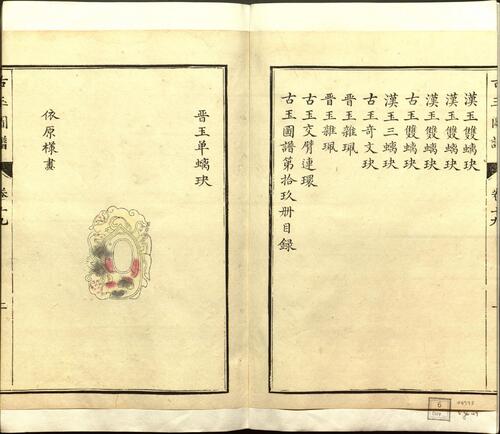 古玉圖譜 卷十九 一
漢玉雙螭玦
漢玉雙螭玦
漢玉雙螭玦
古玉雙螭玦
漢玉三螭玦
古玉奇文玦
晋玉雜珮
晋玉雜珮
古玉交臂連環
古玉圖譜第拾玖册目録
晋玉单螭玦
依原樣畫
古玉圖譜 卷十九 二
6